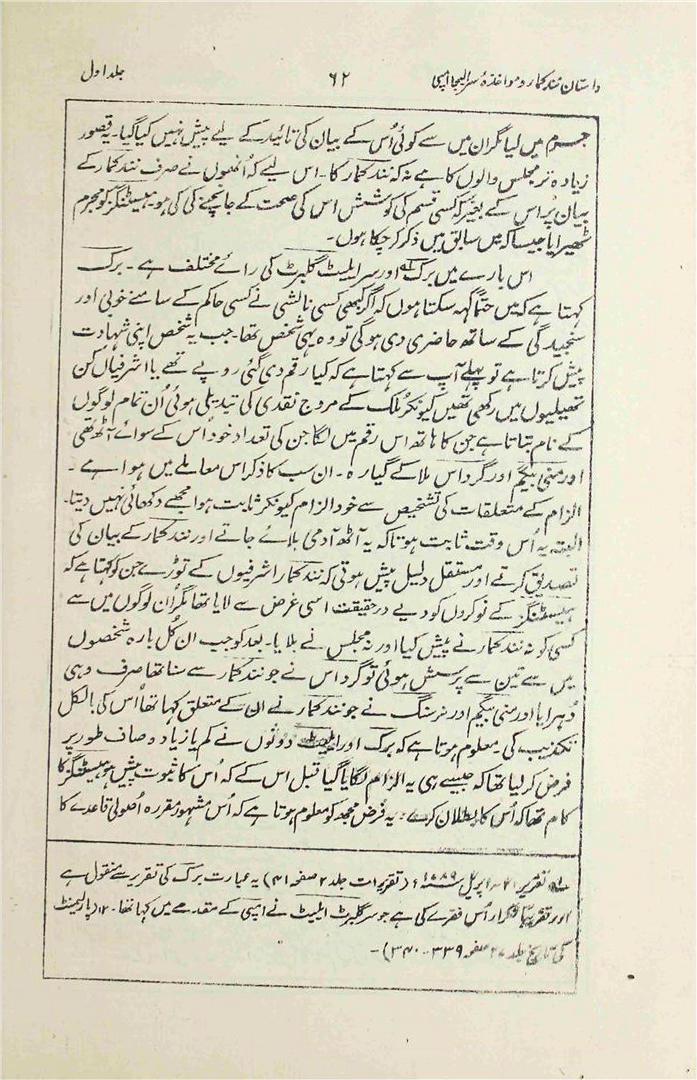 داستان نندکمار و مواخذۂ سر الیجا امپی ۶۲ جلد اول
جرم میں لیا مگر ان میں سے کوئی اُس کے بیان کی تائید کے لیے پیش نہیں کیا گیا۔ یہ قصور
زیادہ تر مجلس والوں کا ہے نہ کہ نندکمار کا۔ اس لیے کہ اُنھوں نے صرف نندکمار کے
بیان پر اس کے بغیر کہ کسی قسم کی کوشش اس کی صحت کے جانچنے کی کی ہو ہیسٹنگز کو مجرم
ٹھیرایا جیسا کہ میں سابق میں ذکر کر چکا ہوں۔
اس بارے میں برک اور سر ایلیٹ گلبرٹ کی رائے مختلف ہے۔ برک
کہتا ہے کہ میں حتماً کہہ سکتا ہوں کہ اگر کبھی کسی نالشی نے کسی حاکم کے سامنے خوبی اور
سنجیدگی کے ساتھ حاضری دی ہو گی تو وہ یہی شخص تھا۔ جب یہ شخص اپنی شہادت
پیش کرتا ہے تو پہلے آپ سے کہتا ہے کہ کیا رقم دی گئی روپے تھے یا اشرفیاں کن
تھیلیوں میں رکھی تھیں کیونکر ملک کے مروج نقدی کی تبدیلی ہوئی اُن تمام لوگوں
کے نام بتاتا ہے جن کا ہاتھ اس رقم میں لگا جن کی تعداد خود اس کے سوائے آٹھ تھی
اور منی بیگم اور گرداس ملا کے گیارہ۔ ان سب کا ذکر اس معاملے میں ہوا ہے۔
الزام کے متعلقات کی تشخیص سے خود الزام کیونکر ثابت ہوا مجھے دکھائی نہیں دیتا۔
البتہ یہ اُس وقت ثابت ہوتا کہ یہ آٹھ آدمی بلائے جاتے اور نندکمار کے بیان کی
تصدیق کرتے اور مستقل دلیل پیش ہوتی کہ نندکمار اشرفیوں کے توڑے جن کو کہتا ہے کہ
ہیسٹنگز کے نوکروں کو دیے درحقیقت اسی غرض سے لایا تھا مگر ان لوگوں میں سے
کسی کو نہ نندکمار نے پیش کیا اور نہ مجلس نے بلایا۔ بعد کو جب ان کُل بارہ شخصوں
میں سے تین سے پرسش ہوئی تو گرداس نے جو نندکمار سے سنا تھا صرف وہی
دُہرایا اور منی بیگم اور نرسنگ نے جو نندکمار نے ان کے متعلق کہا تھا اُس کی بالکل
تکذیب کی معلوم ہوتا ہے کہ برک اور ایلیٹ دونوں نے کم یا زیادہ صاف طور پر
فرض کر لیا تھا کہ جیسے ہی یہ الزام لگایا گیا قبل اس کے کہ اُس کا ثبوت پیش ہو ہیسٹنگز کا
کام تھا کہ اُس کا بطلان کرے۔ یہ فرض مجھ کو معلوم ہوتا ہے کہ اُس مشہور مقررہ اُصولی قاعدے کا
تقریر ۲۱ اپریل ۱۷۸۹ء (تقریرات جلد ۲ صفحہ ۴۱) یہ عبارت برک کی تقریر سے منقول ہے
اور تقریباً تکرار اُس فقرے کی ہے جو سر گلبرٹ ایلیٹ نے امپی کے مقدمے میں کہا تھا۔ ۱۲ (پارلیمنٹ
کی تاریخ جلد صفحہ ۳۳۹۔۳۴۰)۔